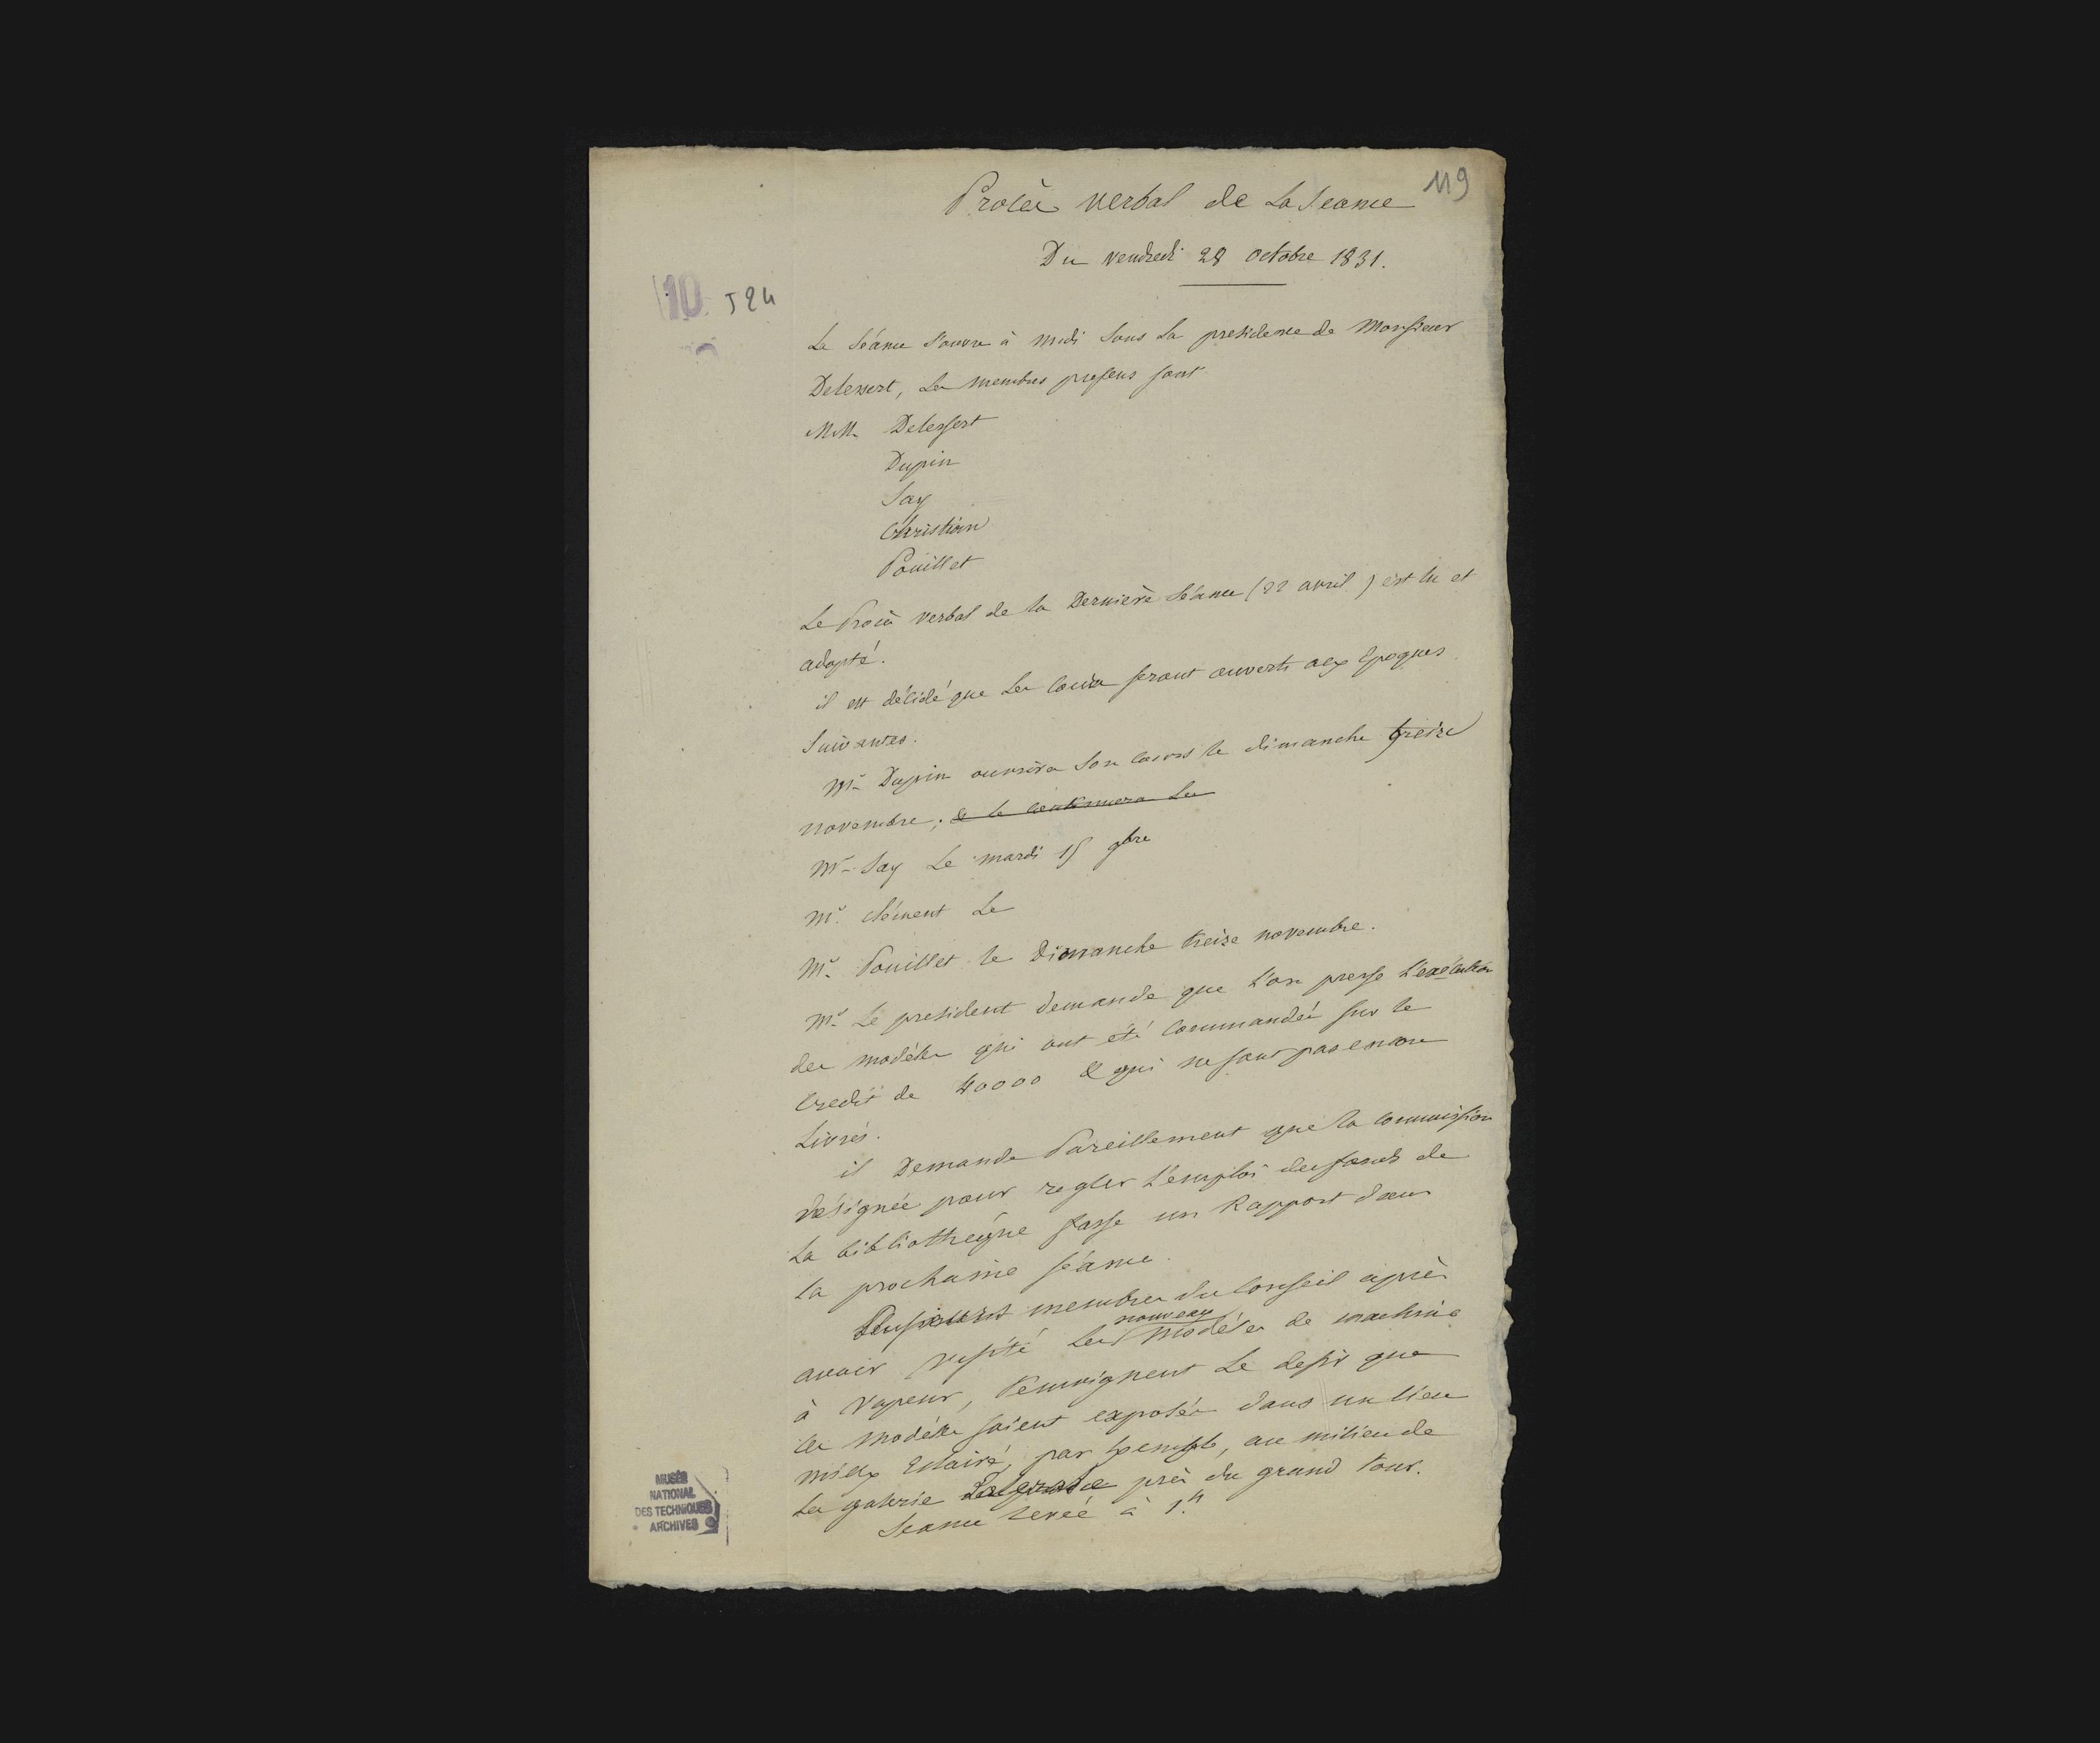 119
Procès verbal de La Seance
Du vendredi 28 octobre 1831.
10 J 24
La Séance s'ouvre à midi Sous La presidence de Monsieur
Delessert, Les membres presens sont
MM. Delessert
Dupin
Say
Christian
Pouillet
Le Procès verbal de la Derniere Séance (22 avril) est lu et
adopté.
il est décidé que Les Cours seront ouverts aux Epoques
Suivantes.
Mr Dupin ouvrira Son Cours le dimanche treize
novembre, & le continuera Les
Mr Say Le mardi 15 9bre
Mr. Clément Le
Mr. Pouillet le Dimanche treize novembre.
Mr. Le president demande que l'on presse l'exécution
des modèles qui ont été Commandés sur le
Credit de 40000 & qui ne sont pas encore
Livrés.
il Demande Pareillement que la Commission
désignée pour regler l'emploi des fonds de
La bibliothèque fasse un Rapport dans
la prochaine séance.
Plusieurs membres du Conseil après
avoir visité Les nouveaux modèles de machine
à vapeur, témoignent Le desir que
ces modèles soient exposés dans un lieu
mieux Eclairé, par Exemple, au milieu de
La galerie près du grand tour.
Seance levée à 1.h
MUSÉE
NATIONAL
DES TECHNIQUES
ARCHIVES